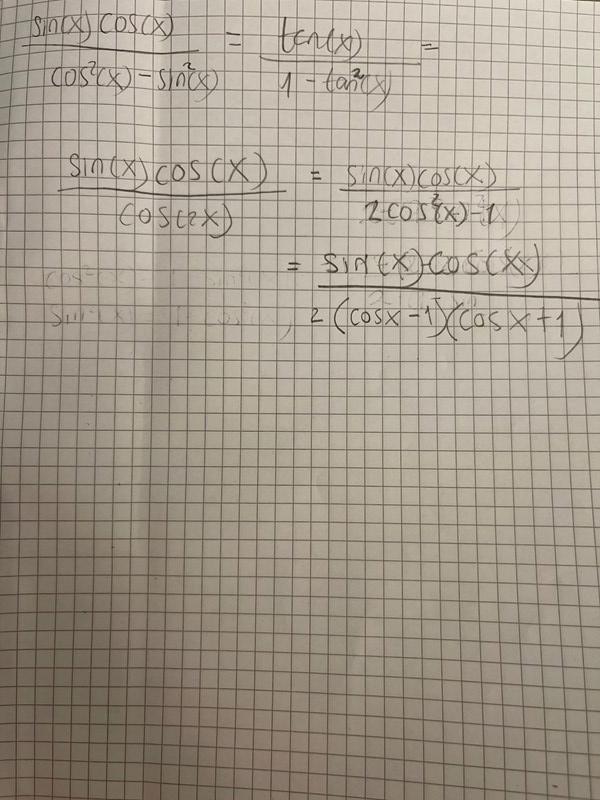 sin(x) cos(x) / cos²(x) - sin²(x) = tan(x) / 1 - tan²(x) =
sin(x) cos(x) / cos(2x) = sin(x) cos(x) / 2 cos²(x) - 1
= sin(x) cos(x) / 2 (cosx - 1)(cosx + 1)